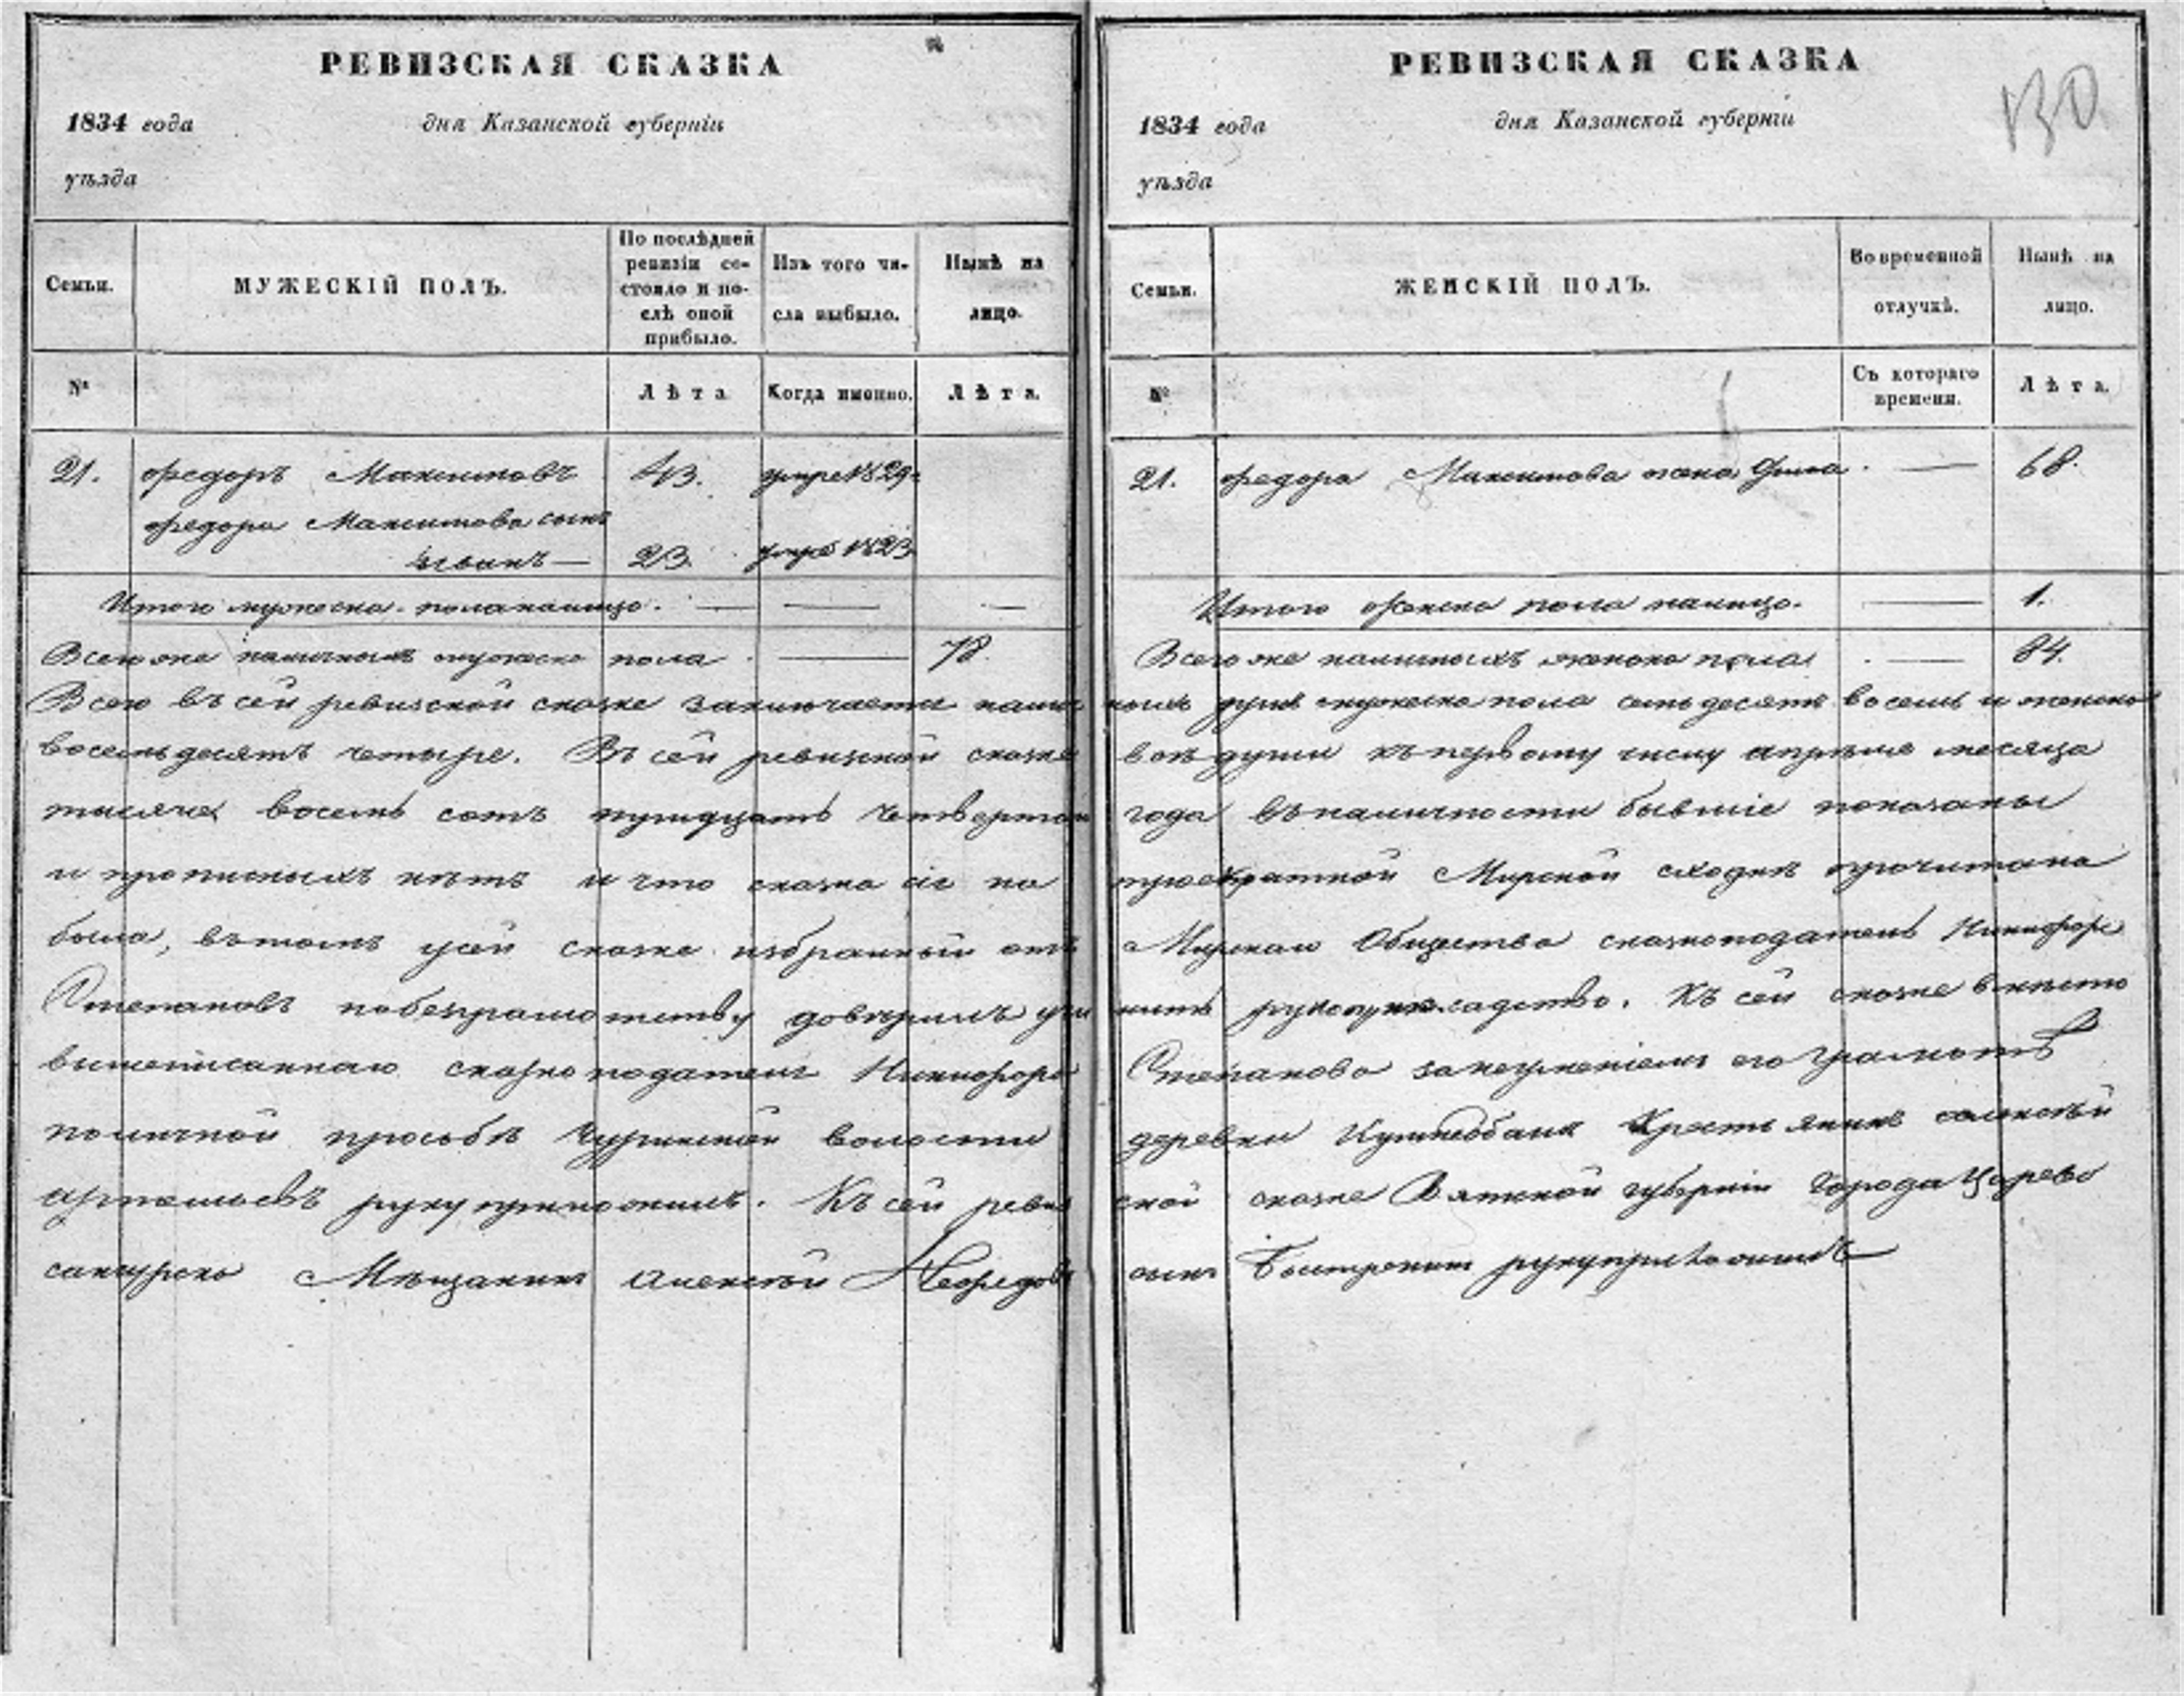 РЕВИЗСКАЯ СКАЗКА
1834 года дня Казанской губерніи
уѣзда
Семьи.
МУЖЕСКІЙ ПОЛЪ.
По послѣдней ревизіи со-
стояло и по-
слѣ оной
прибыло.
Изъ того чи-
сла выбыло.
Нынѣ на
лицо.
№
Лѣта
Когда именно.
Лѣта.
21. Федоръ Максимовъ 43. умре 1829
Федора Максимова сынъ
23. умре 1823
Итого мужеска пола налицо. — — —
Всего же наличныхъ мужеска пола — 78.
РЕВИЗСКАЯ СКАЗКА
130
1834 года дня Казанской губерніи
уѣзда
Семьи.
ЖЕНСКІЙ ПОЛЪ.
Во временной
отлучкѣ.
Нынѣ на
лицо.
№
Съ котораго
времени.
Лѣта.
21. Федора Максимова жена — 68.
Итого женска пола налицо. — 1.
Всего же наличныхъ женска пола — 84.
Всего въ сей ревизской сказке заключается налич ныхъ душъ мужеска пола семьдесятъ восемь и женска
восемьдесятъ четыре. Въ сей ревизской сказке все души къ первому числу апреля месяца
тысяча восемь сотъ тридцать четвертаго года въ наличности бывшіе показаны
и прописныхъ нѣтъ и что сказка сія на троекратной Мирской сходке прочитана
была, въ томъ къ сей сказке избранный отъ Мирскаго Общества сказкоподатель Никифоръ
Степановъ по безграмотству доверилъ учи нить рукоприкладство. Къ сей сказке вместо
вышеписаннаго сказкоподателя Никифора Степанова за неумениемъ его грамоте
по личной просьбѣ волости деревни Крестьянинъ
руку приложилъ. Къ сей ревиз ской сказке Вятской губерніи города Царево
санчурска Мещанинъ Алексей сынъ руку приложилъ